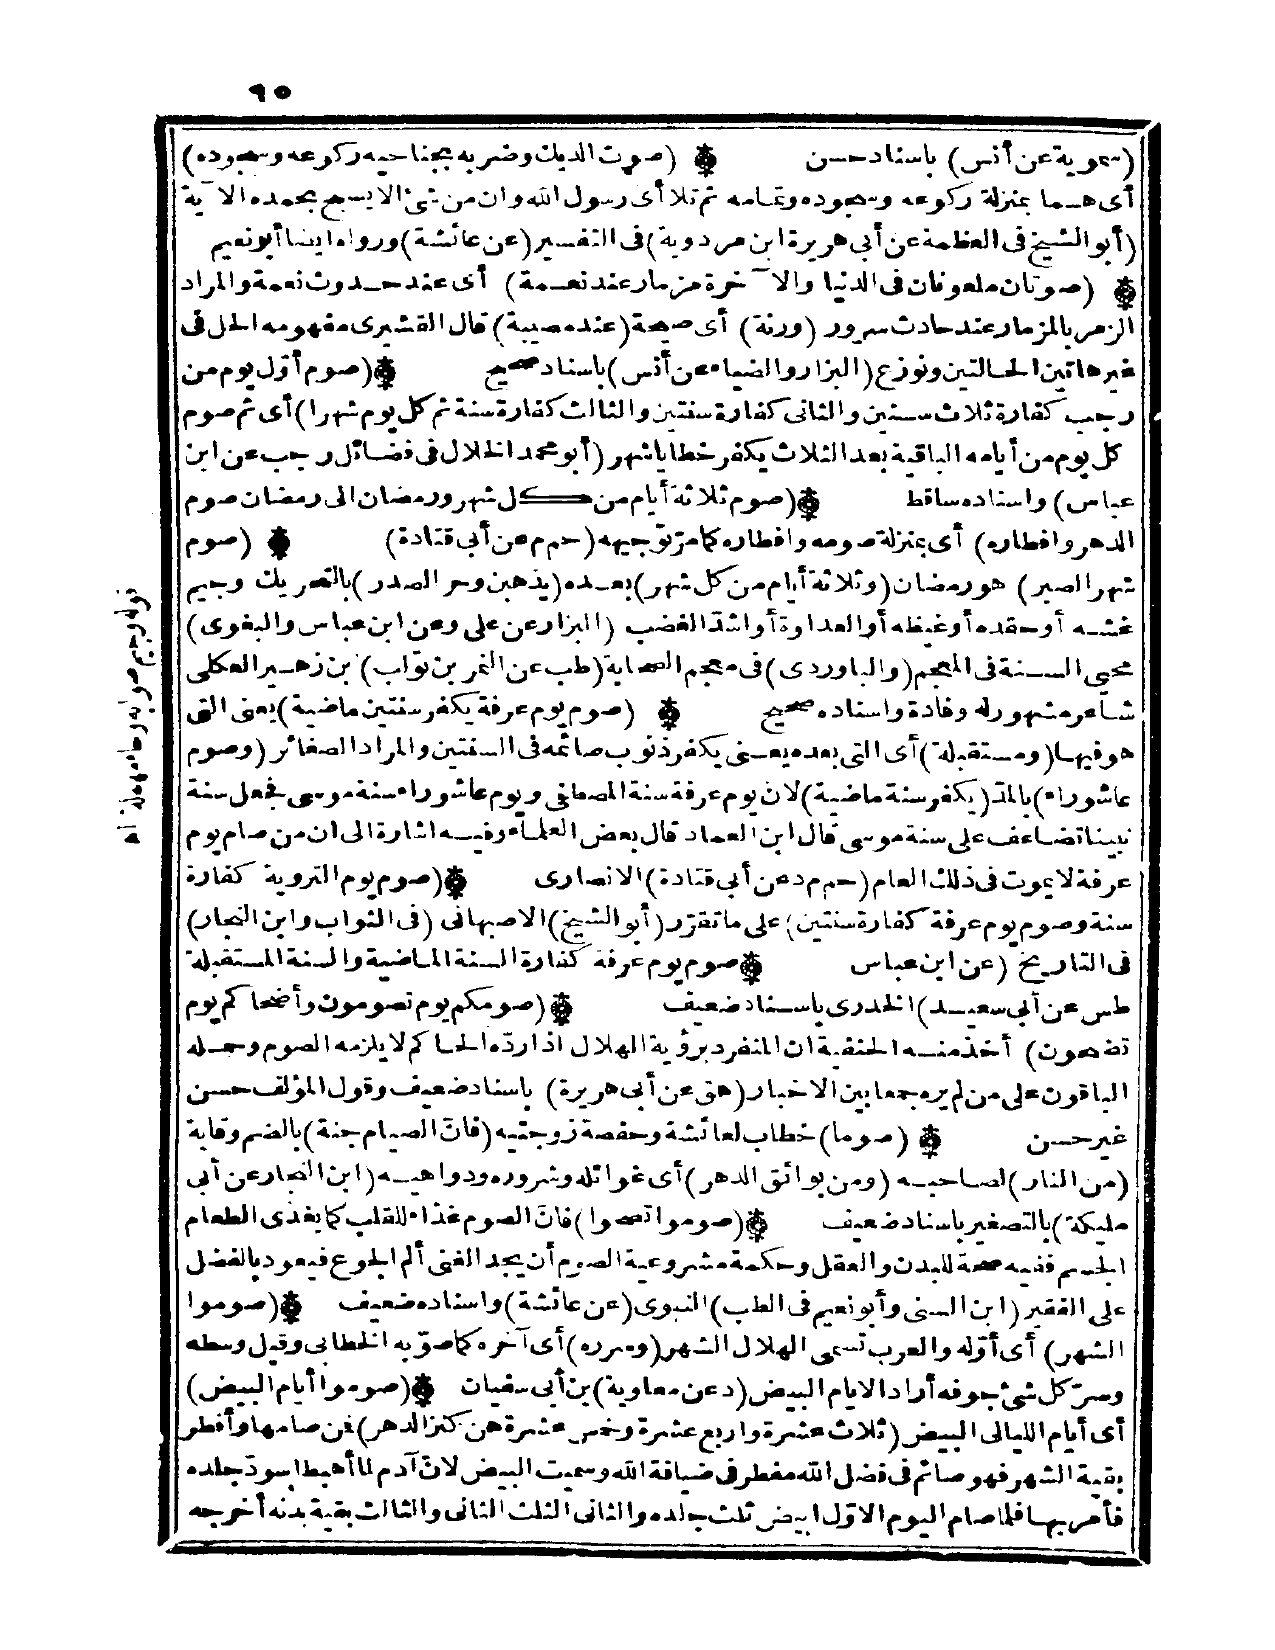 ٩٥
(سموية عن أنس) باسناد حسن (صوت الديك وضربه بجناحيه ركوعه وسجوده)
أى هـما بمنزلة ركوعه وسجوده وتمامه ثم تلا أى رسول الله وان من شئ الا يسبح بحمده الآية
(أبو الشيخ فى العظمة عن أبى هريرة ابن مردوية) فى التفسير (عن عائشة) ورواه ايضا أبو نعيم
(صوتان ملعونان فى الدنيا والآخرة مزمار عند نعـمة) أى عند حـدوث نعمة والمراد
الزمر بالمزمار عند حادث سرور (ورنة) أى صيحة (عند مصيبة) قال القشيرى مفهومه الحل فى
غير هاتين الحالتين ونوزع (البزار والضياء عن أنس) باسناد صحيح (صوم أوّل يوم من
رجب كفارة ثلاث سـنين والثانى كفارة سنتين والثالث كفارة سنة ثم كل يوم شهرا) أى ثم صوم
كل يوم من أيامه الباقية بعد الثلاث يكفر خطايا شهر (أبو محمد الخلال فى فضائل رجب عن ابن
عباس) واسناده ساقط (صوم ثلاثة أيام من كل شهر ورمضان الى رمضان صوم
الدهر وافطاره) أى بمنزلة صومه وافطاره كما مرّ توجيهه (حم م عن أبى قتادة) (صوم
شهر الصبر) هو رمضان (وثلاثة أيام من كل شهر) بعـده (يذهبن وحر الصدر) بالتحريك وجيم
غشـه أو حقده أو غيظه أو العداوة أو اشدّ الغضب (البزار عن على وعن ابن عباس والبغوى)
محيى السـنة فى المعجم (والباوردى) فى معجم الصحابة (طب عن النمر بن تواب) بن زهـير العكلى
شاعر مشهور له وفادة واسناده صحيح (صوم يوم عرفة يكفر سنتين ماضية) يعنى التى
هو فيها (ومستقبلة) أى التى بعده يعـنى يكفر ذنوب صائمه فى السنتين والمراد الصغائر (وصوم
عاشوراء) بالمدّ (يكفر سنة ماضية) لان يوم عرفة سنة المصطفى ويوم عاشوراء سنة موسى فجعل سنة
نبينا تضاعف على سنة موسى قال ابن العماد قال بعض العلماء وفيـه اشارة الى ان من صام يوم
عرفة لا يموت فى ذلك العام (حم م د عن أبى قتادة) الانصارى (صوم يوم التروية كفارة
سنة وصوم يوم عرفة كفارة سنتين) على ما تقرّر (أبو الشيخ) الاصبهانى (فى الثواب وابن النجار)
فى التاريخ (عن ابن عباس (صوم يوم عرفة كفارة السنة الماضية والسنة المستقبلة
طس عن أبى سعيـد) الخدرى باسـناد ضعيف (صومكم يوم تصومون وأضحاكم يوم
تضحون) أخذ منـه الحنفية ان المنفرد برؤية الهلال اذا ردّه الحاكم لا يلزمه الصوم وحمـله
الباقون على من لم يره جمعا بين الاخبار (هق عن أبى هريرة) باسناد ضعيف وقول المؤلف حسن
غير حسن (صوما) خطاب لعائشة وحفصة زوجتيه (فانّ الصيام جنة) بالضم وقاية
(من النار) لصاحبـه (ومن بوائق الدهر) أى غوائله وشروره ودواهيـه (ابن النجار عن أبى
مليكة) بالتصغير باسناد ضعيف (صوموا تصحوا) فانّ الصوم غذاء للقلب كما يغذى الطعام
الجسـم ففيه صحة للبدن والعقل وحكمة مشروعية الصوم أن يجد الغنى ألم الجوع فيعود بالفضل
على الفقير (ابن السنى وأبو نعيم فى الطب) النبوى (عن عائشة) واسناده ضعيف (صوموا
الشهر) أى أوّله والعرب تسمى الهلال الشهر (وسرره) أى آخره كما صوّبه الخطابى وقيل وسطه
وسرّ كل شئ جوفه أراد الايام البيض (د عن معاوية) بن أبى سفيان (صوموا أيام البيض)
أى أيام الليالى البيض (ثلاث عشرة واربع عشرة وخمس عشرة هن كنز الدهر) فمن صامها وأفطر
بقية الشهر فهو صائم فى فضل الله مفطر فى ضيافة الله وسميت البيض لانّ آدم لما أهبط اسودّ جلده
فأمر بها فلما صام اليوم الاوّل ابيض ثلث جلده والثانى الثلث الثانى والثالث بقية بدنه أخرجه
قوله وجيم صوابه وحاء مهملة اه